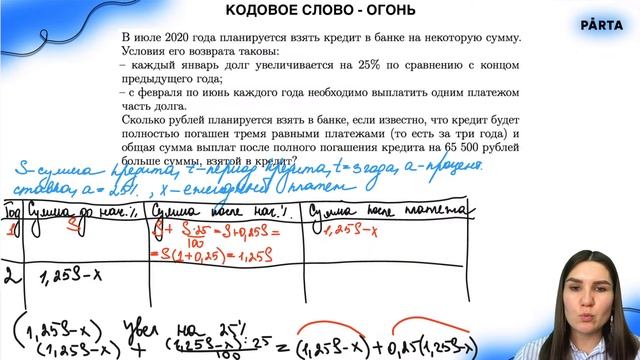 КОДОВОЕ СЛОВО - ОГОНЬ
PARTA
В июле 2020 года планируется взять кредит в банке на некоторую сумму.
Условия его возврата таковы:
– каждый январь долг увеличивается на 25% по сравнению с концом
предыдущего года;
– с февраля по июнь каждого года необходимо выплатить одним платежом
часть долга.
Сколько рублей планируется взять в банке, если известно, что кредит будет
полностью погашен тремя равными платежами (то есть за три года) и
общая сумма выплат после полного погашения кредита на 65 500 рублей
больше суммы, взятой в кредит?
S-сумма кредита, t-период кредита, t=3года, a-процент.
ставка, a=25%, x-ежегодный платеж
Год Сумма до нач.% Сумма после нач.% Сумма после платежа
1 S S + S·25/100 = S+0,25S = 1,25S-x
= S(1+0,25) = 1,25S
2 1,25S-x
(1,25S-x) увел на 25%
(1,25S-x) + (1,25S-x)·25/100 = (1,25S-x)+0,25(1,25S-x)